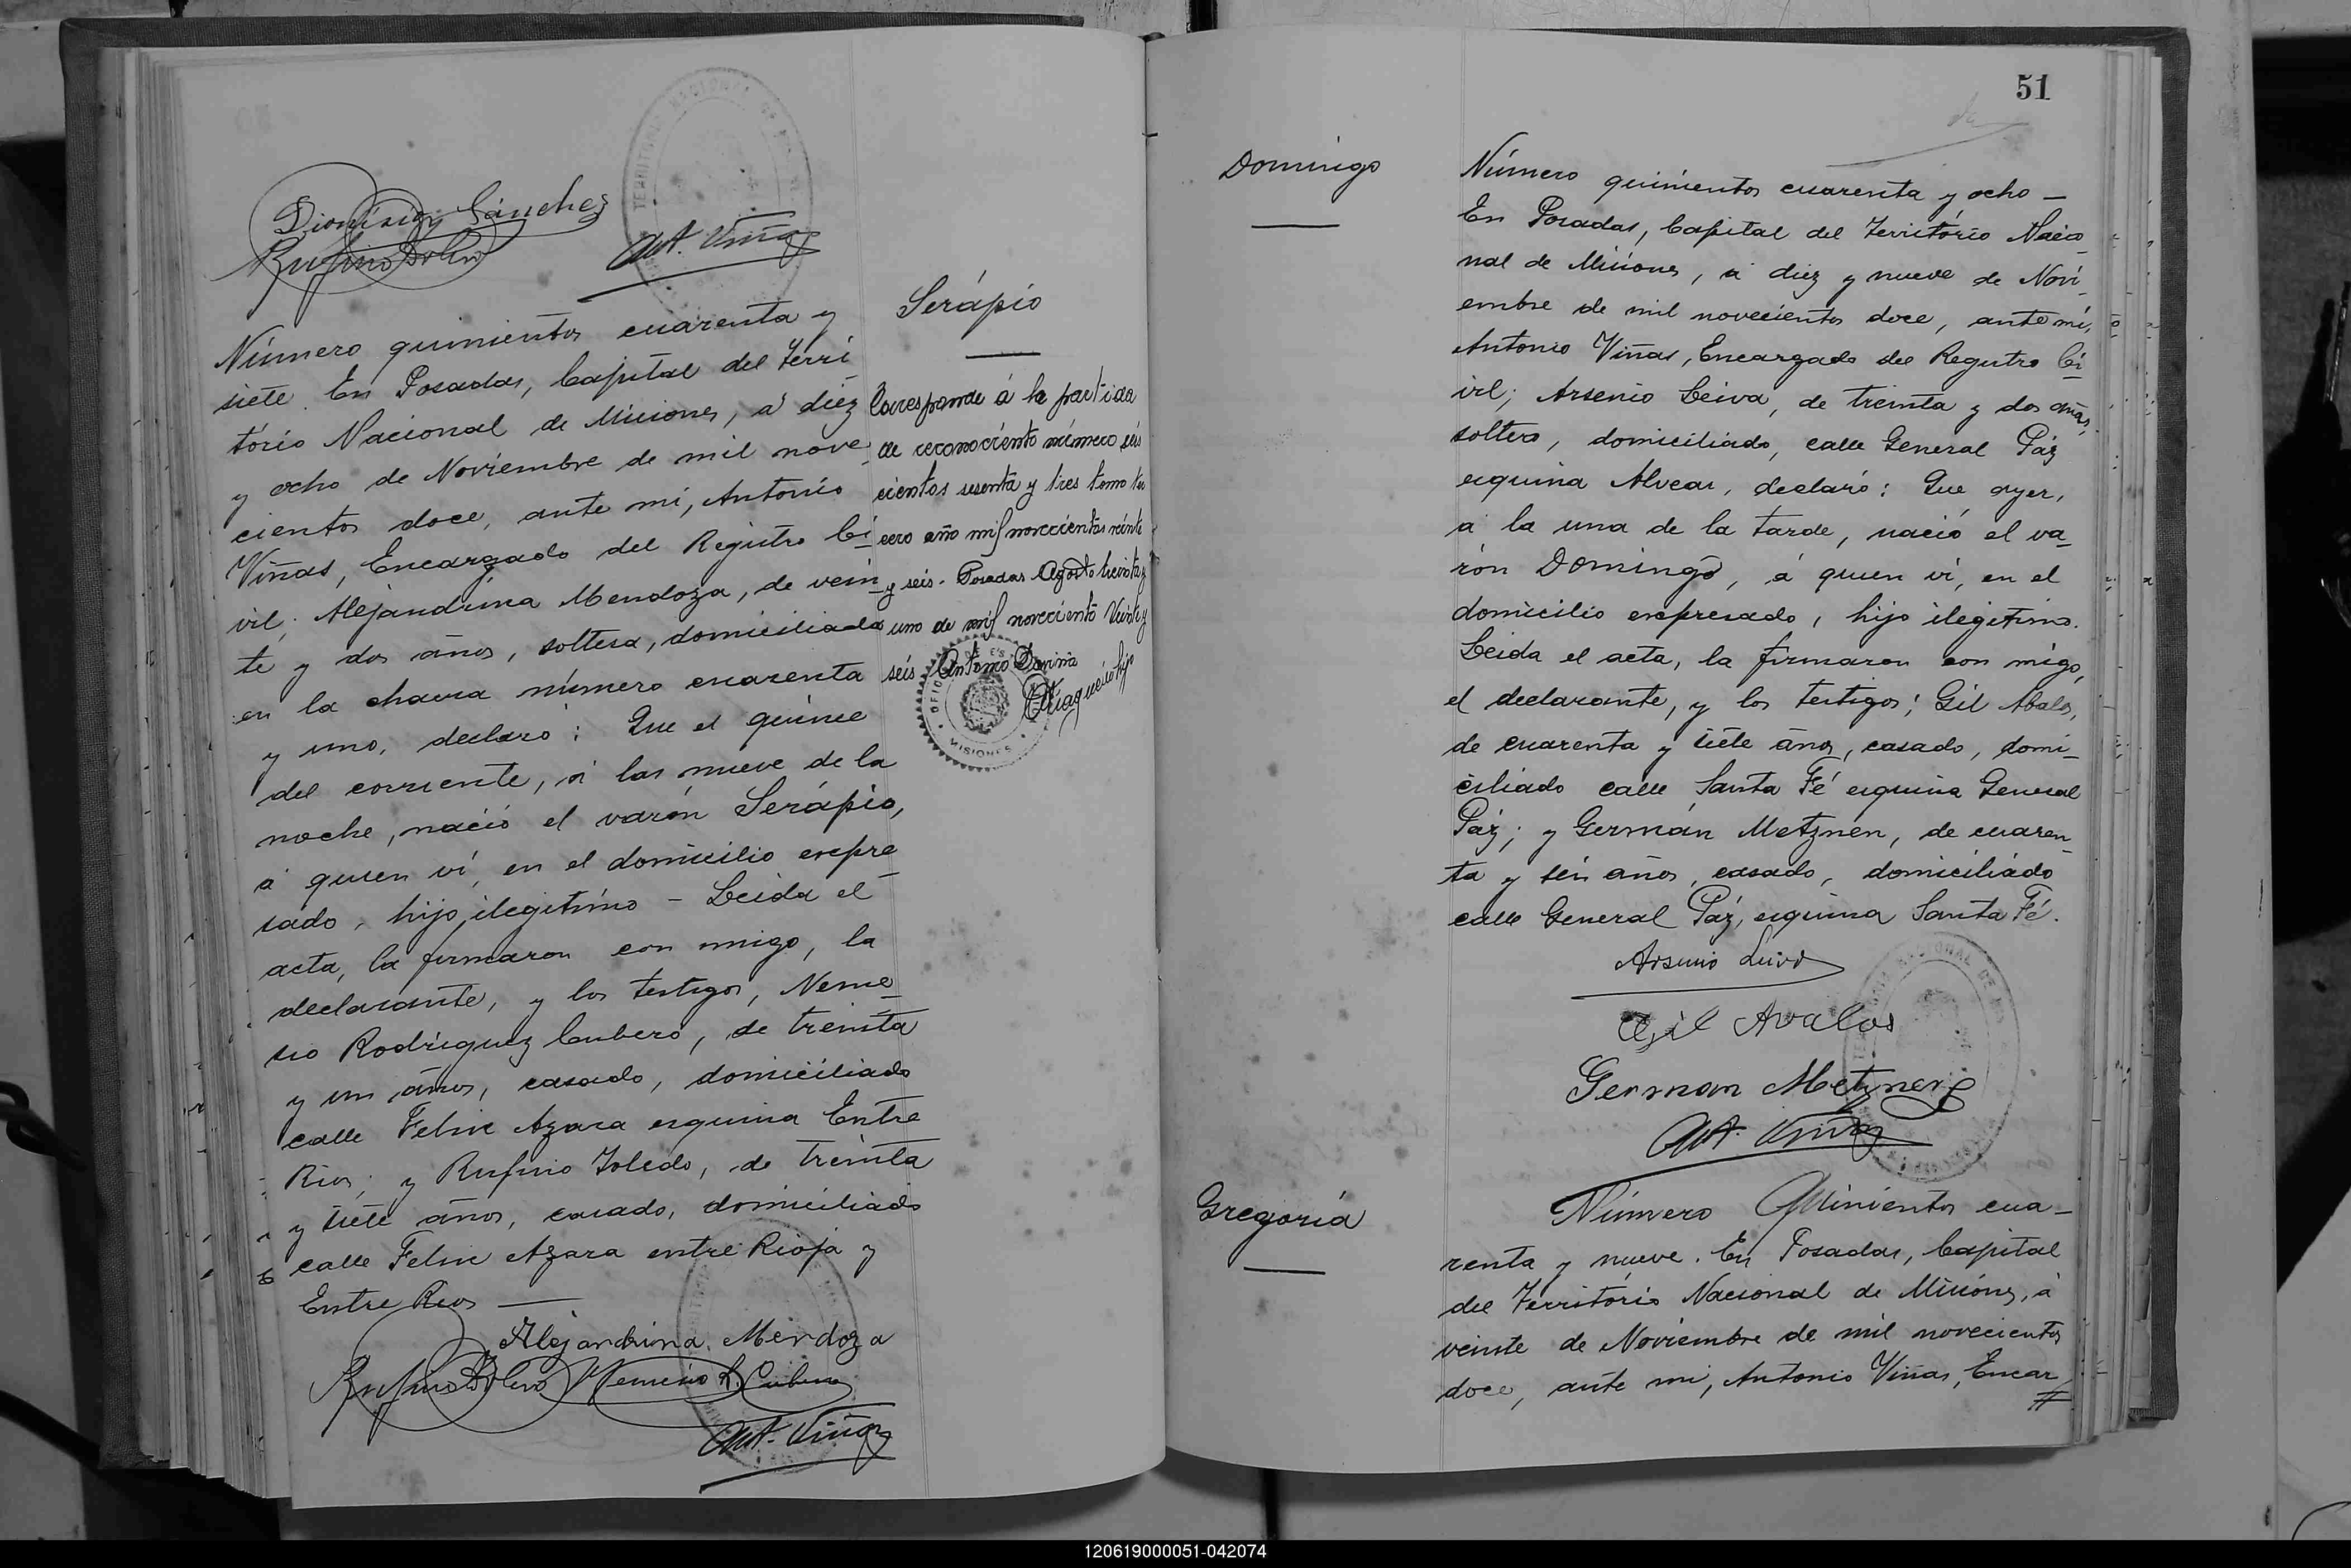 Dionisio Sánchez
Ant. Viñas
Número quinientos cuarenta y
siete. En Posadas, Capital del Terri
tório Nacional de Misiones, á diez
y ocho de Noviembre de mil nove
cientos doce, ante mí, Antonio
Viñas, Encargado del Registro Ci
vil; Alejandrina Mendoza, de vein
te y dos años, soltera, domiciliada
en la chacra número cuarenta
y uno, declaró: Que el quince
del corriente, á las nueve de la
noche, nació el varón Serápio,
á quien ví, en el domicilio expre
sado, hijo ilegitimo - Leida el
acta, la firmaron con migo, la
declarante, y los testigos, Neme
sio Rodriguez Cubero, de treinta
y un años, casado, domiciliado
calle Felix Azara esquina Entre
Rios; y Rufino Toledo, de treinta
y siete años, casado, domiciliado
calle Felix Azara entre Rioja y
Entre Rios
Alejandrina Mendoza
Nemesio R. Cubero
Ant. Viñas
Serápio
Corresponde á la partida
de reconociento número seis
cientos sesenta y tres tomo ter
cero año mil novecientos veinte
y seis. Posadas Agosto treinta y
uno de mil novecientos Veinte y
seis
OFICINA DE
MISIONES
51
Domingo
Número quinientos cuarenta y ocho -
En Posadas, Capital del Territorio Nacio
nal de Misiones, á diez y nueve de Novi
embre de mil novecientos doce, ante mí,
Antonio Viñas, Encargado del Registro Ci
vil; Arsenio Leiva, de treinta y dos años,
soltero, domiciliado, calle General Páz
esquina Alvear, declaró: Que ayer,
á la una de la tarde, nació el va
rón Domingo, á quien ví, en el
domicilio expresado, hijo ilegitimo.
Leida el acta, la firmaron con migo,
el declarante, y los testigos; Gil Abalos,
de cuarenta y siete años, casado, domi-
ciliado calle Santa Fé esquina General
Páz; y Germán Metznen, de cuaren
ta y seis años, casado, domiciliado
calle General Páz, esquina Santa Fé.
Arsenio Leiva
Gil Avalos
German Metzner
Ant. Viñas
Gregoria
Número Quinientos cua-
renta y nueve. En Posadas, Capital
del Territorio Nacional de Misiones, á
veinte de Noviembre de mil novecientos
doce, ante mi, Antonio Viñas, Encar
120619000051-042074